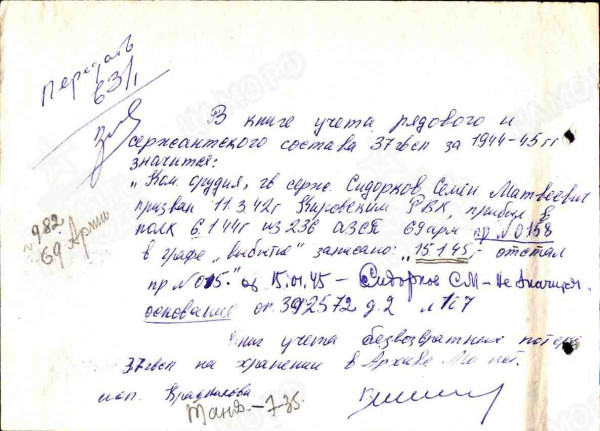 Передать
63/1
В книге учета рядового и
сержантского состава 37 гвсп за 1944-45 гг
значится:
"Ком. орудия, гв серж. Сидорков Семён Матвеевич
призван 11.3.42г Кировским РВК, прибыл в
полк 6.1.44г из 236 АЗСП 69 арм пр. № 0158
в графе "выбытие" записано: "15.1.45, - отстал
пр № 015." от 15.01.45 - Сидорков СМ - не значится.
основание оп. 392572 д. 2 л 167
№ 982
69 Армии
Книг учета безвозвратных потерь
37 гвсп на хранении в Архиве МО нет.
исп. Краснкова